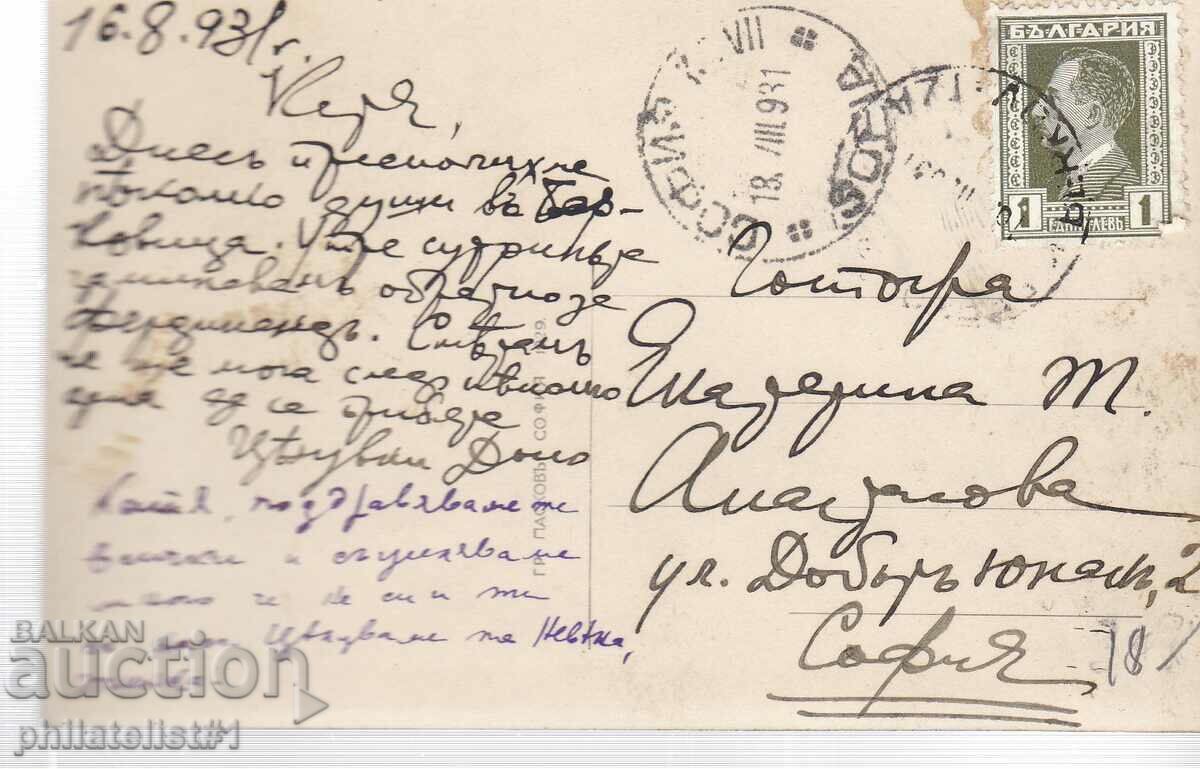 16.8.931 г.
Катя,
Днесъ пристигнахме
няколко души въ Бер-
ковица. Утре сутриньта
заминавамъ обратно за
Фердинандъ. Смѣтамъ
че ще мога следъ няколко
дена да се прибера
Цѣлувки
Катя, поздравяваме те
всички и съжаляваме
много че не си и ти
Цѣлуваме те Невѣна,
ГР. ПАСКОВЪ СОФИЯ 1929.
БЪЛГАРИЯ
1 ЕДИНЪ ЛЕВЪ 1
СОФИЯ
SOFIA
18.VIII.931
Госпожа
Екатерина Т.
Апостолова
ул. Добъръ Юнакъ, 2
София
78
BALKAN
auction
philatelist#1